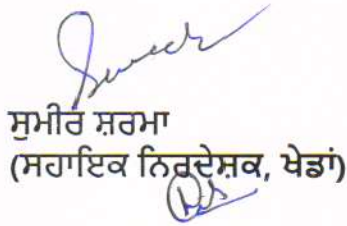 ਸੁਮੀਰ ਸ਼ਰਮਾ
(ਸਹਾਇਕ ਨਿਰਦੇਸ਼ਕ, ਖੇਡਾਂ)